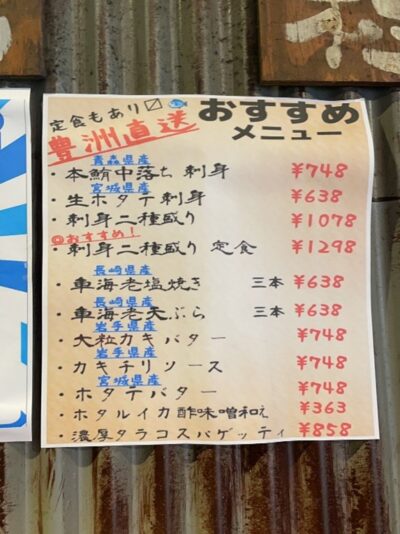 定食もあり☑
豊洲直送
おすすめ
メニュー
青森県産
・本鮪中落ち 刺身 ¥748
宮城県産
・生ホタテ刺身 ¥638
・刺身二種盛り ¥1078
◎おすすめ!
・刺身二種盛り 定食 ¥1298
長崎県産
・車海老塩焼き 三本 ¥638
長崎県産
・車海老天ぷら 三本 ¥638
岩手県産
・大粒カキバター ¥748
岩手県産
・カキチリソース ¥748
宮城県産
・ホタテバター ¥748
・ホタルイカ酢味噌和え ¥363
・濃厚タラコスパゲッティ ¥858